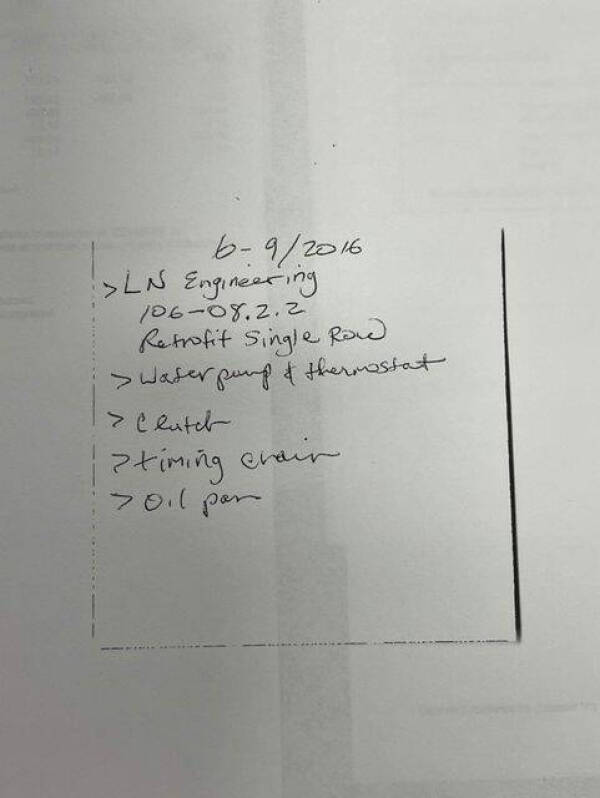 6-9/2016
> LN Engineering
106-08.2.2
Retrofit Single Row
> Water pump & thermostat
> Clutch
> timing chain
> Oil pan